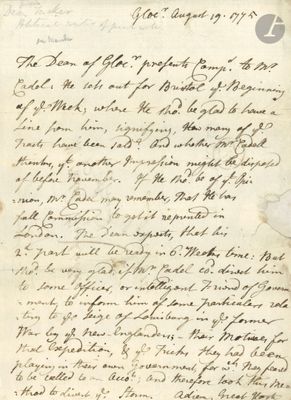 Dean Tucker
Gloc.r August 19. 1775
The Dean of Gloc.r presents Comp.ts to Mr.
Cadel: He sets out for Bristol ye Beginning
of ye Week, where He sho.d be glad to have a
Line from him, signifying, How many of ye
Tracts have been sold? And whether Mr. Cadell
thinks, yt another Impression might be disposed
of before November. If He sho.d be of ys Opi-
nion, Mr. Cadel may remember, that He has
full Commission to get it reprinted in
London. The Dean expects, that his
2.d part will be ready in 6. Weeks time: But
sho.d be very glad, if Mr. Cadel co.d direct him
to some Officer, or intelligent Friend of Govern-
ment, to inform him of some particulars rela-
ting to ye Seige of Louisburg in ye former
War by ye New-Englanders; — their Motives for
that Expedition, & ye Tricks they had been
playing in their own Government, for wh. they feared
to be called to an Acc.t; and therefore took this Me-
thod to divert ye Storm.